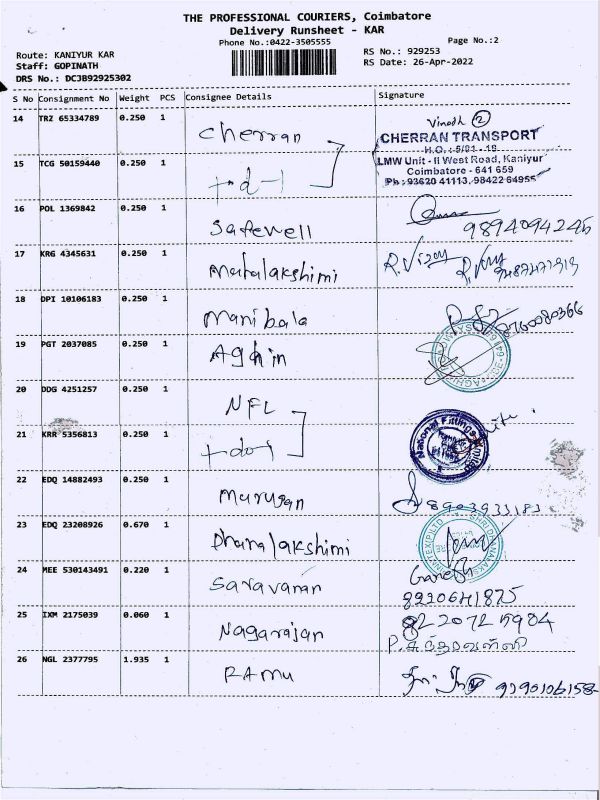 THE PROFESSIONAL COURIERS, Coimbatore
Delivery Runsheet - KAR
Phone No.:0422-3505555
Page No.:2
Route: KANIYUR KAR
Staff: GOPINATH
DRS No.: DCJB92925302
RS No.: 929253
RS Date: 26-Apr-2022
S No Consignment No Weight PCS Consignee Details Signature
14 TRZ 65334789 0.250 1 Cherran
Vinoth 2
CHERRAN TRANSPORT
H.O. :
LMW Unit - II West Road, Kaniyur
Coimbatore - 641 659
Ph : 93620 41113, 98422 64955
15 TCG 50159440 0.250 1
16 POL 1369842 0.250 1 Safewell 9894094245
17 KRG 4345631 0.250 1 Mahalakshimi R. Vijay
18 DPI 10106183 0.250 1 Manibala
19 PGT 2037085 0.250 1 Aghin
20 DDG 4251257 0.250 1 NFL
21 KRR 5356813 0.250 1
National Fittings Limited
22 EDQ 14882493 0.250 1 Murugan 8903933183
23 EDQ 23208926 0.670 1 Dhanalakshimi
24 MEE 530143491 0.220 1 Saravanan Ganesh
8220641875
25 IXM 2175039 0.060 1 Nagarajan
26 NGL 2377795 1.935 1 RAMU